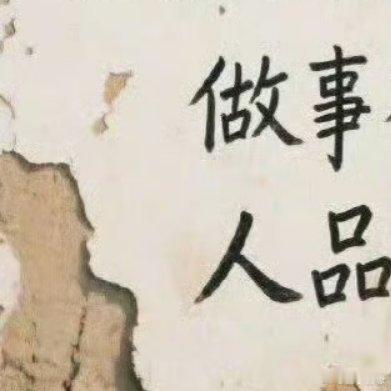 做事
人品